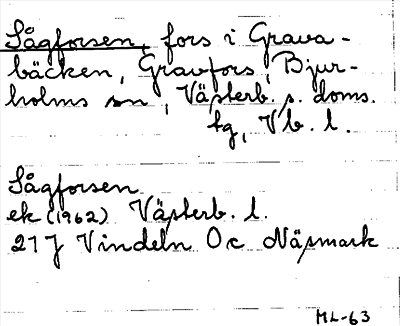 Sågforsen, fors i Grava-
bäcken, Gravfors, Bjur-
holms sn, Västerb. s. doms.
tg, Vb. l.
Sågforsen
ek (1962) Västerb. l.
21J Vindeln Oc Näsmark
ML-63